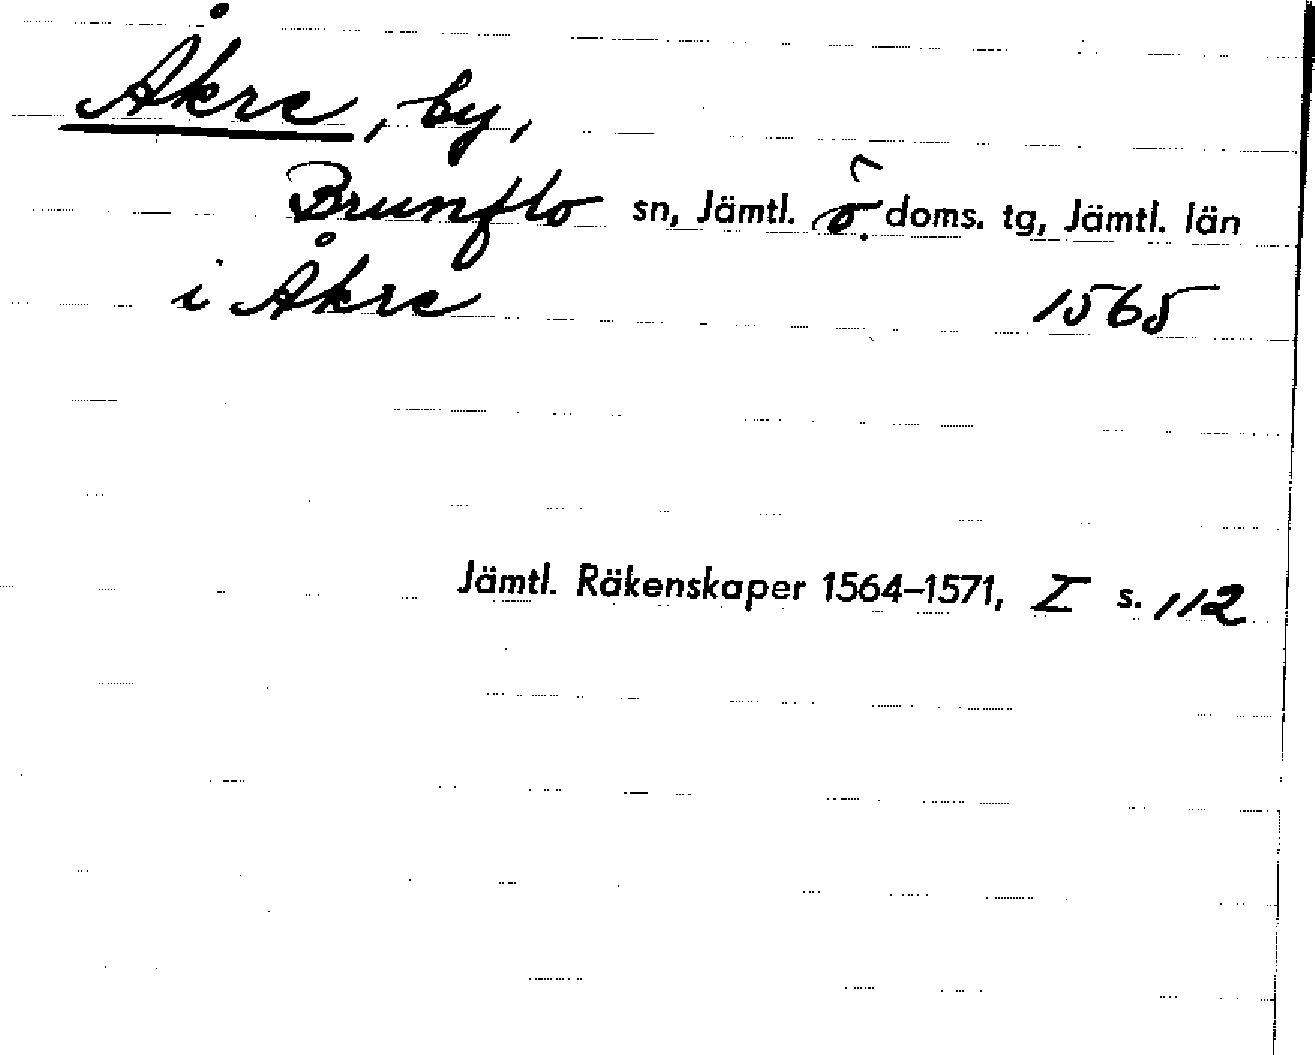 Åkre, by,
Brunflo sn, Jämtl. ö. doms. tg, Jämtl. län
i Åkre 1565
Jämtl. Räkenskaper 1564–1571, I s. 112